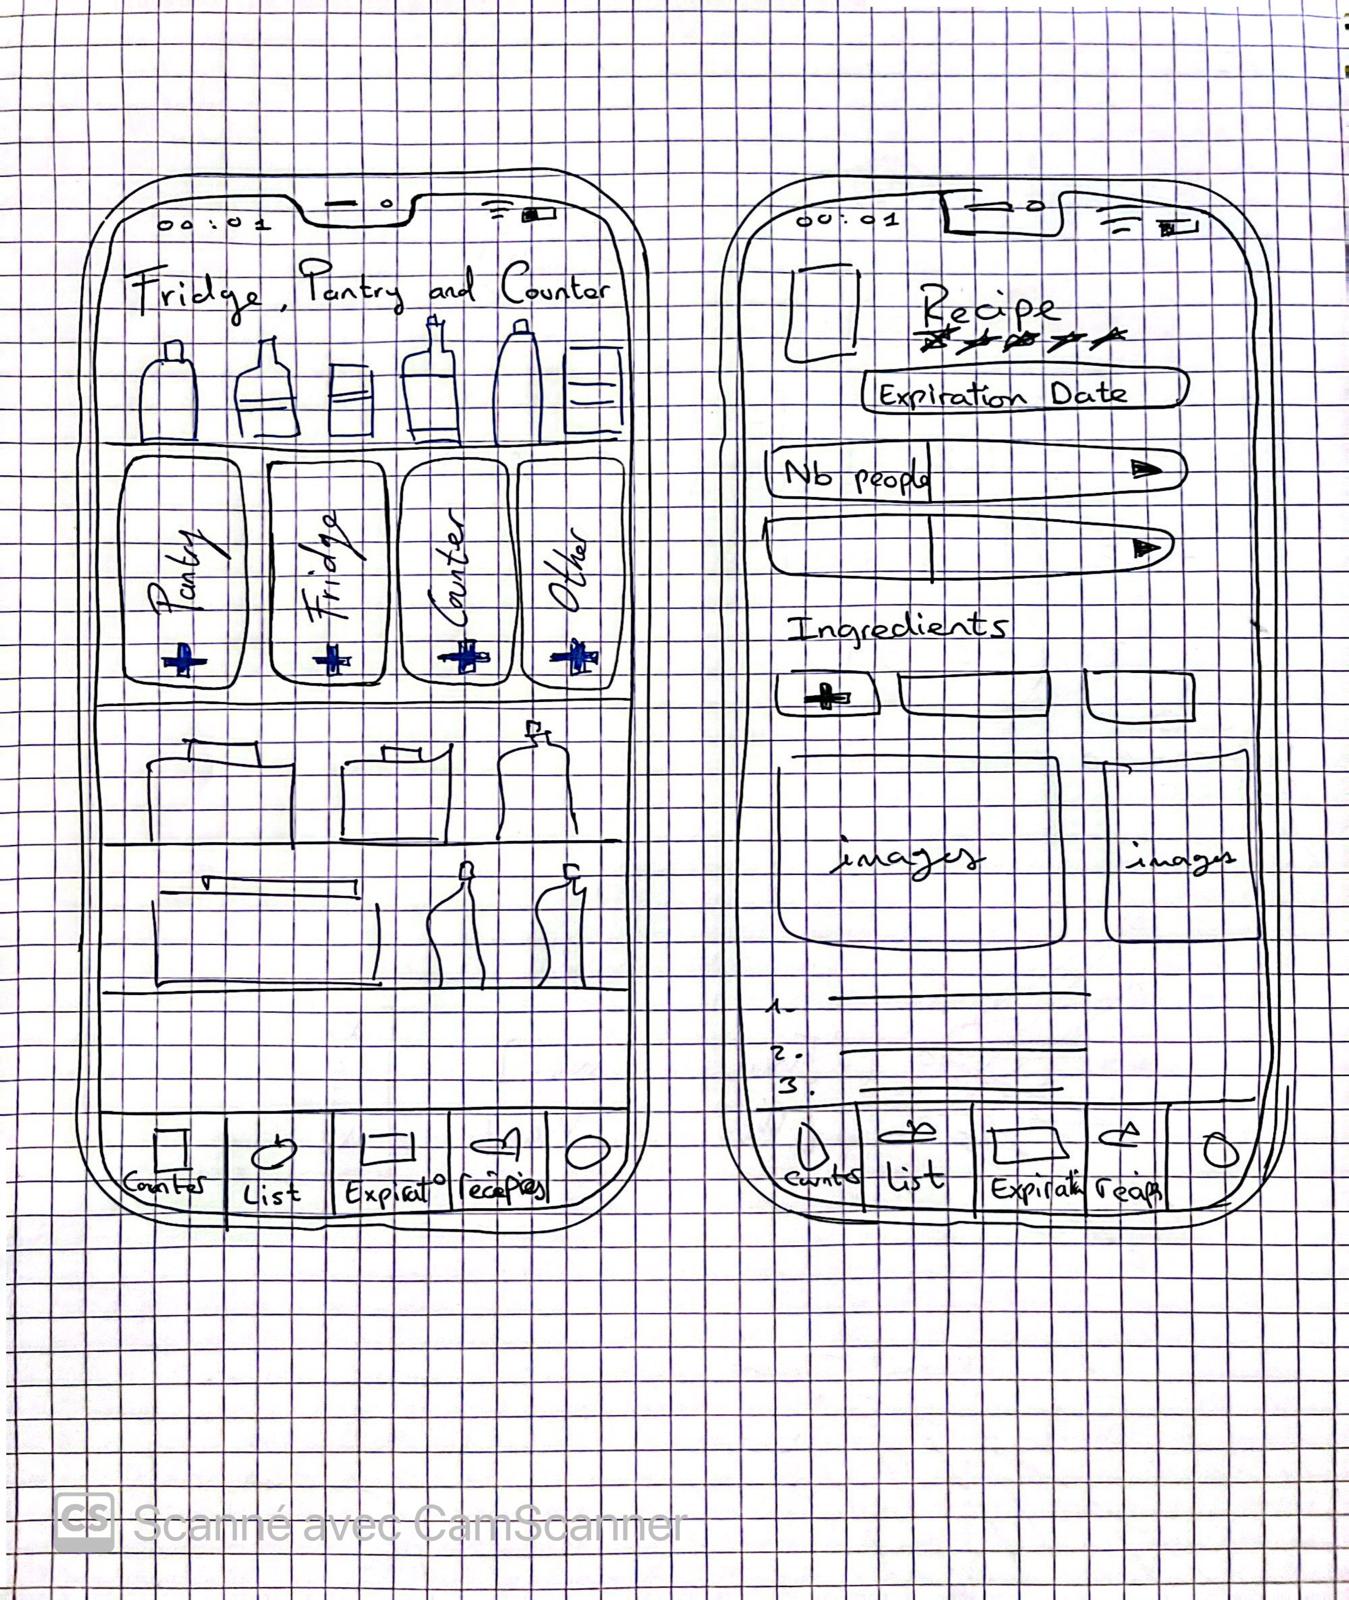 00:01
Fridge, Pantry and Counter
Pantry
Fridge
Counter
Other
Counter
List
Expirat°
recepies
00:01
Recipe
Expiration Date
Nb people
Ingredients
images
images
1.
2.
3.
List
CS Scanné avec CamScanner